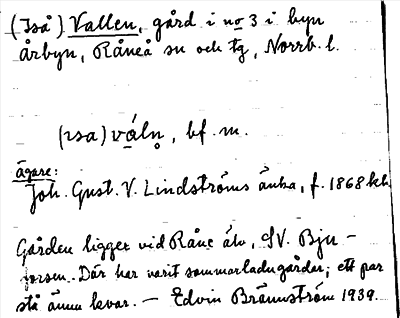 (Iså) Vallen, gård i no 3 i byn
årbyn, Råneå sn och tg, Norrb. l.
(ɪsa) váln̥, bf. m.
ägare:
Joh. Gust. V. Lindströms änka, f. 1868
Gården ligger vid Råne älv, SV. Bju-
Där har varit sommarladugårdar; ett par
stå ännu kvar. — Edvin Brännström 1939.